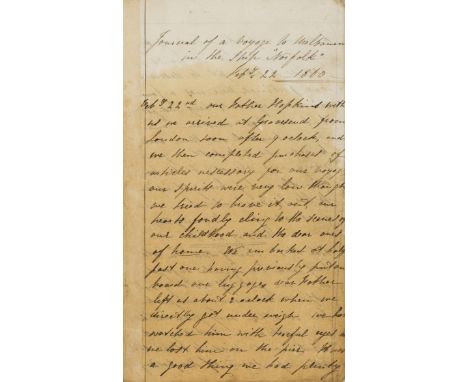 Journal of a Voyage to Melbourne
in the Ship "Norfolk"
Feby 22 1863
Feby 22nd our Father Hopkins with
us we arrived at Gravesend from
London soon after 9 oclock, and
we then completed purchases of
articles necessary for our voyage
our spirits were very low though
we tried to brave it out our
hearts fondly cling to the scenes of
our childhood and the dear ones
of home. We embarked at half
past one having previously put on
board our luggage our Father
left us about 2 oclock when we
directly got under weigh we had
watched him with tearful eyes
we lost him on the pier It was
a good thing we had plenty